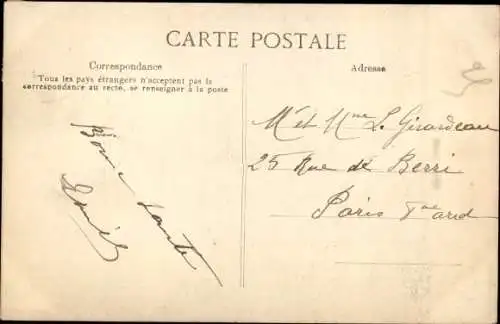 CARTE POSTALE
Correspondance
Tous les pays étrangers n'acceptent pas la
correspondance au recto, se renseigner à la poste
Adresse
Bonne santé
Mr et Mme L. Girardeau
25 Rue de Berri
Paris